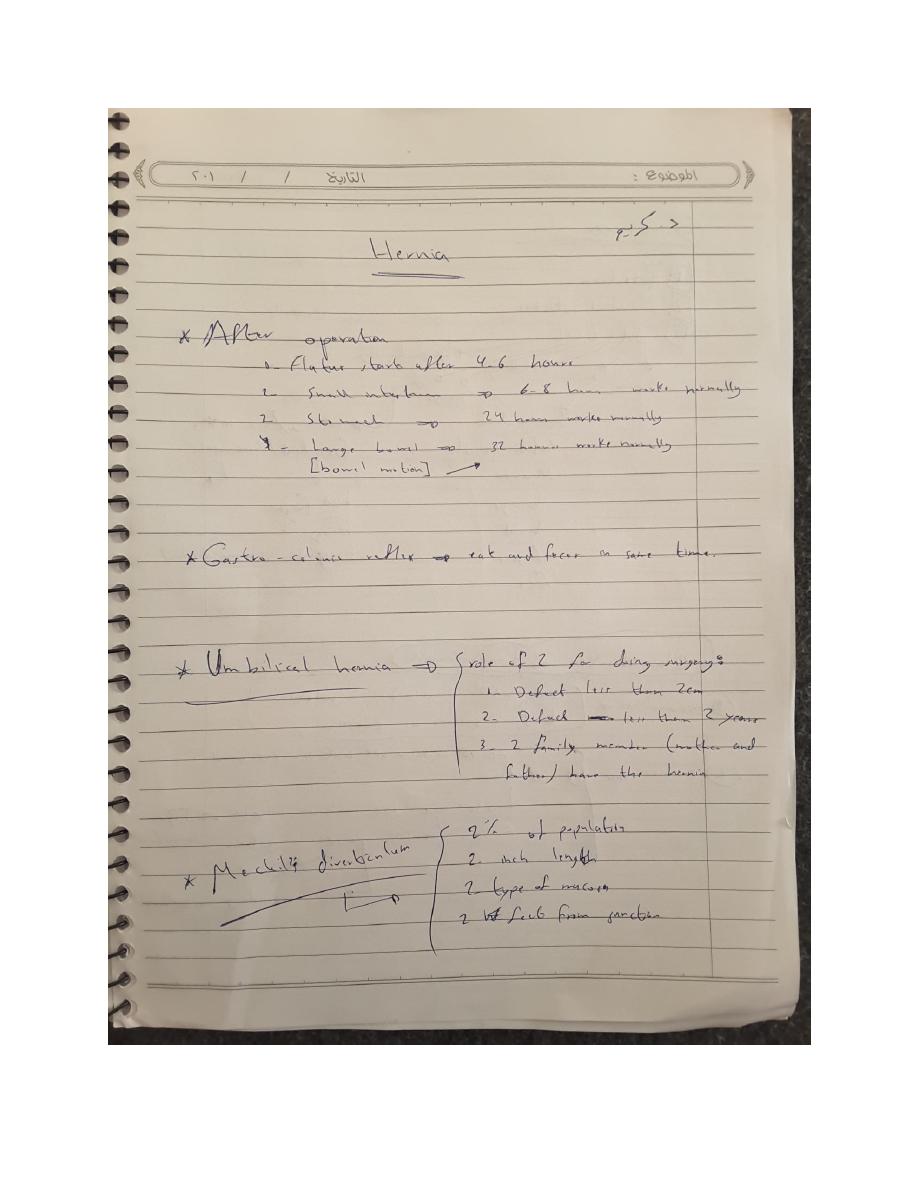 الموضوع :
التاريخ / / ٢٠١
د. كريم
Hernia
* After operation
1- Flatus starts after 4-6 hours
2- Small intestine ⇒ 6-8 hours works normally
2- Stomach ⇒ 24 hours works normally
4- Large bowel ⇒ 32 hours works normally
[bowel motion]
* Gastro-colonic reflex ⇒ eat and feces in same time.
* Umbilical hernia ⇒ role of 2 for doing surgery:
1- Defect less than 2cm
2- Defect less than 2 years
3- 2 family member (mother and
father) have the hernia
* diverticulum
2% of population
2- inch length
2 type of mucosa
2 feet from junction